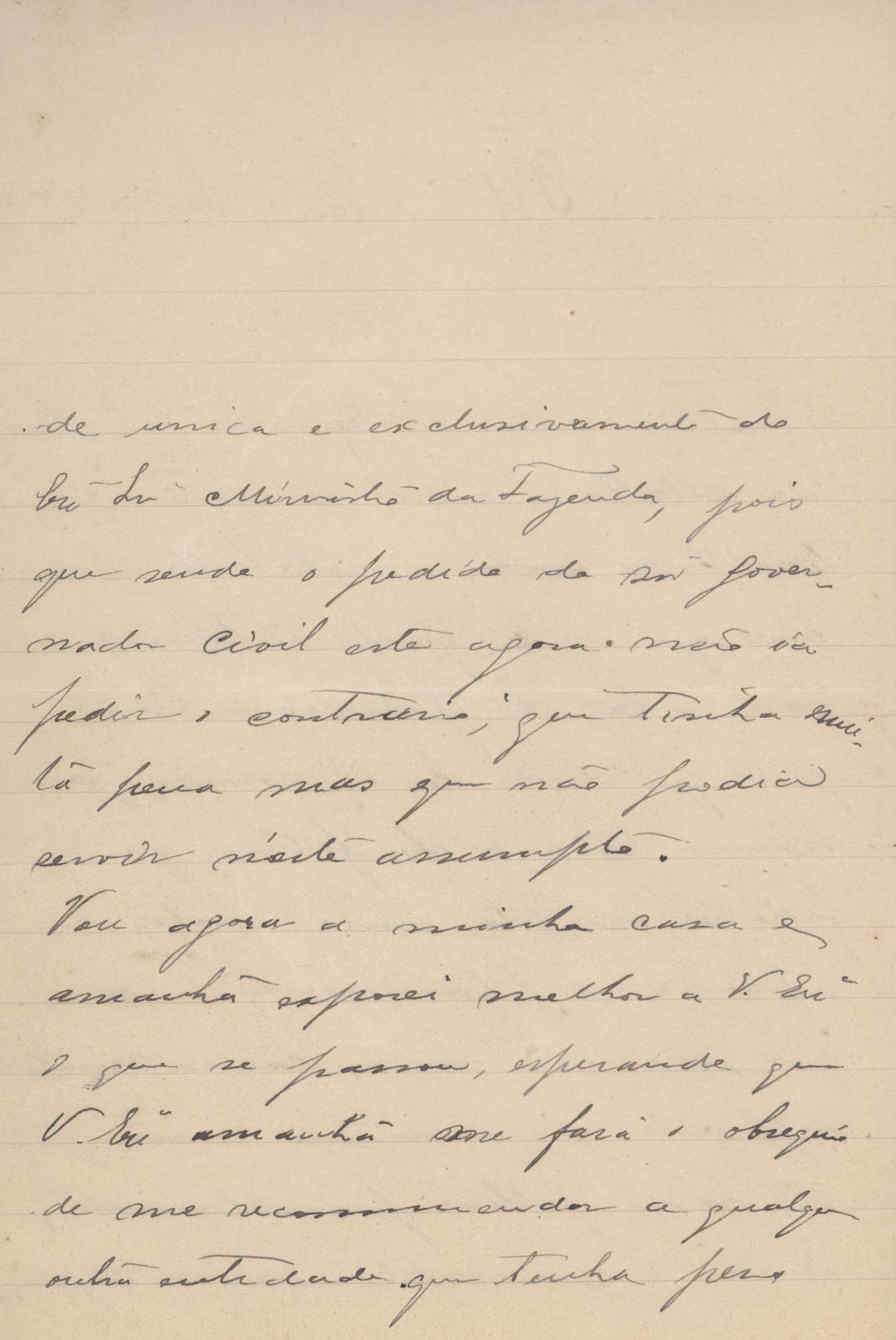 de unica e exclusivamente do
Exᵐᵒ Sr Ministro da Fazenda, pois
que sendo o pedido do Snr Gover-
nador Civil este agora não ia
pedir o contrario; que tinha mui-
ta pena mas que não podia
servir n'este assumpto.
Vou agora a minha casa e
amanhã exporei melhor a V. Exª
o que se passou, esperando que
V. Exª amanhã me fará o obsequio
de me recommendar a qualquer
outra entidade que tenha peso